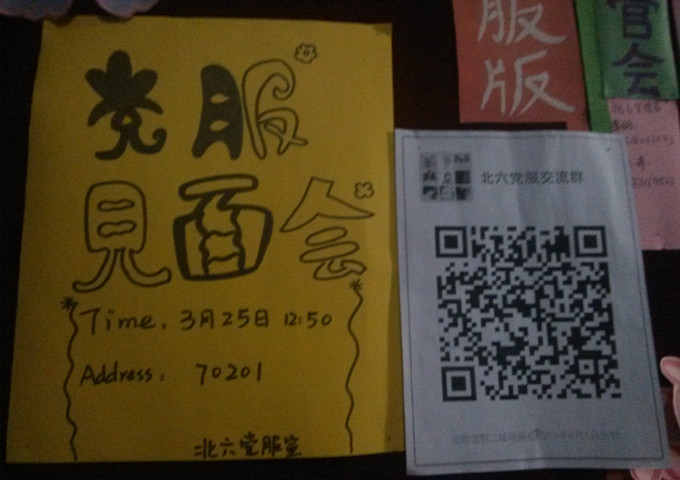 党服
見面会
Time. 3月25日 12:50
Address: 70201
北六党服室
服
版
管会
北六党服交流群